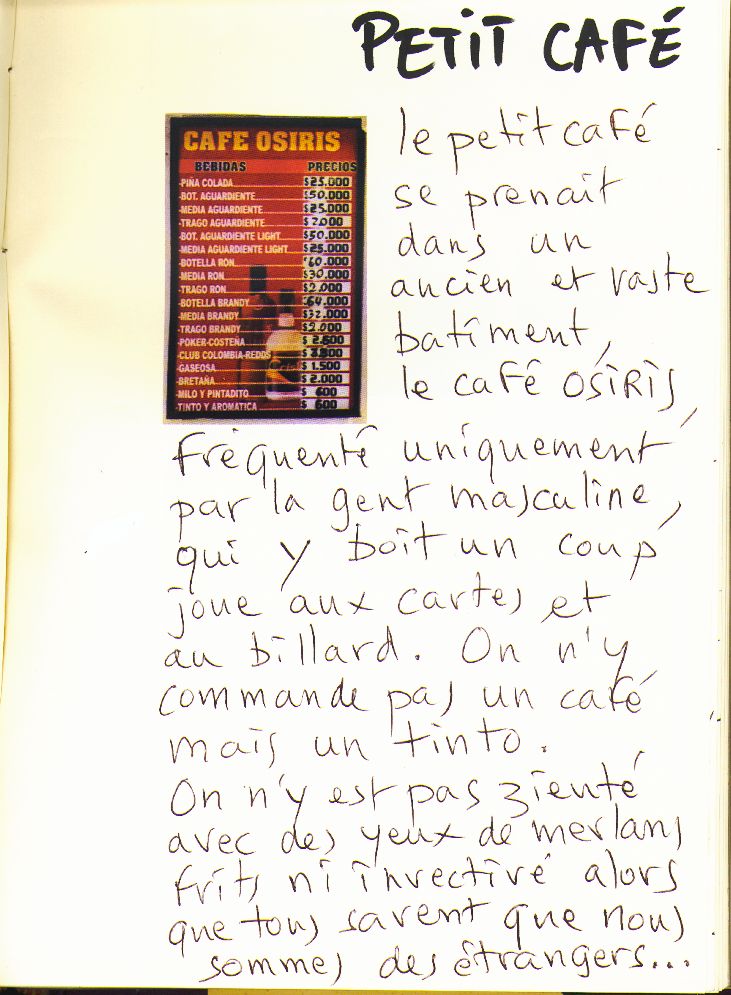 PETIT CAFÉ
CAFE OSIRIS
BEBIDAS PRECIOS
-PIÑA COLADA $25.000
-BOT. AGUARDIENTE $50.000
-MEDIA AGUARDIENTE $25.000
-TRAGO AGUARDIENTE $2.000
-BOT. AGUARDIENTE LIGHT $50.000
-MEDIA AGUARDIENTE LIGHT $25.000
-BOTELLA RON 60.000
-MEDIA RON $30.000
-TRAGO RON $2.000
-BOTELLA BRANDY 64.000
-MEDIA BRANDY $32.000
-TRAGO BRANDY $2.000
-POKER-COSTEÑA $2.500
-CLUB COLOMBIA-REDDS $
GASEOSA $1.500
-BRETAÑA $2.000
-MILO Y PINTADITO $600
-TINTO Y AROMATICA $600
le petit café
se prenait
dans un
ancien et vaste
batiment,
le café OSIRIS,
fréquenté uniquement
par la gent masculine,
qui y boit un coup
joue aux cartes et
au billard. On n'y
commande pas un café
mais un tinto.
On n'y est pas zienté
avec des yeux de merlans
frits ni invectivé alors
que tous savent que nous
sommes des étrangers...